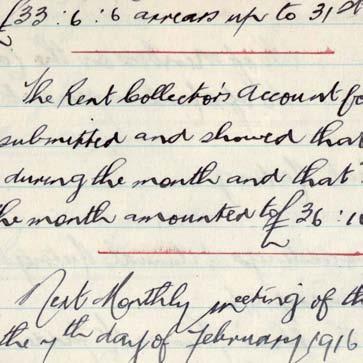 £33 : 6 : 6 arrears up to 31st
The Rent Collector's Account fo
submitted and showed that
during the month and that
the month amounted to £36 : 1
Next Monthly meeting of th
the 7th day of February 1916